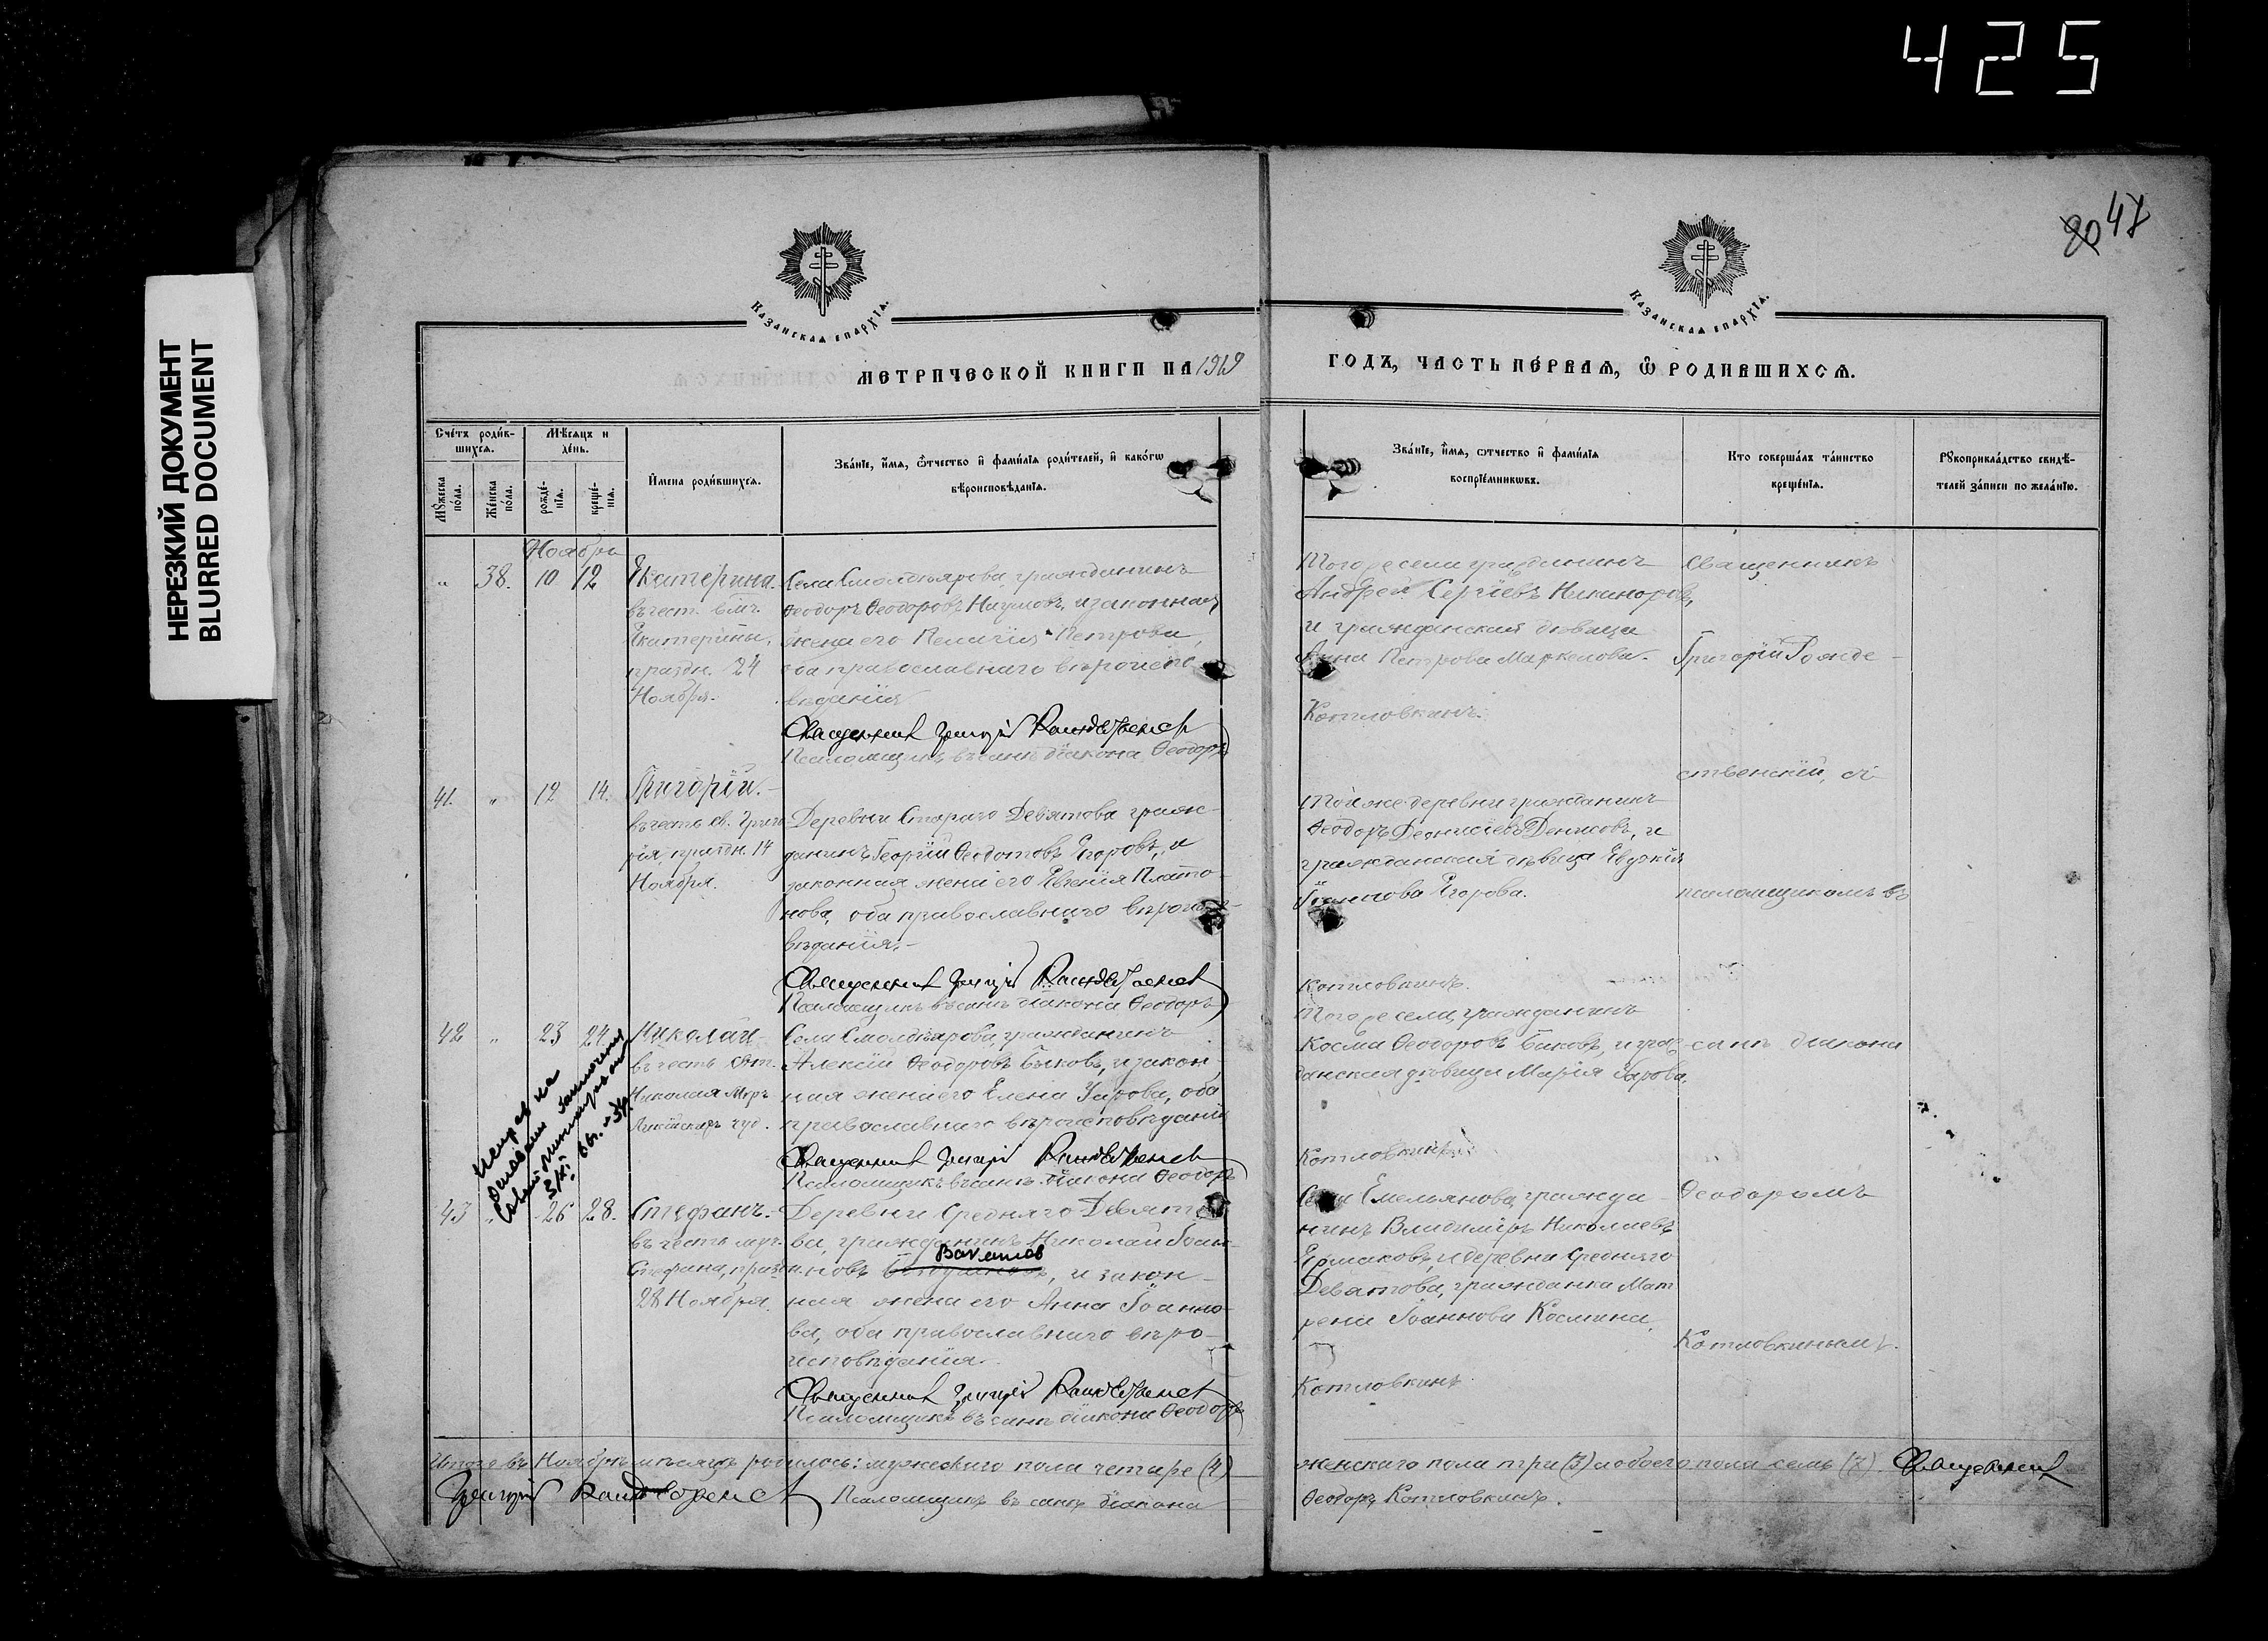 425
НЕРЕЗКИЙ ДОКУМЕНТ
BLURRED DOCUMENT
47
Казанская епархія.
Казанская епархія.
МЕТРИЧЕСКОЙ КНИГИ НА 1919
ГОДЪ, ЧАСТЬ ПЕРВАЯ, Ѽ РОДИВШИХСЯ.
Счетъ родив-
шихся.
Мужеска
пола.
Женска
пола.
Мѣсяцъ и
день.
рожде-
нія.
креще-
нія.
Имена родившихся.
Званіе, имя, ѿтчество и фамилія родителей, и какогѡ
вѣроисповѣданія.
Званіе, имя, ѻтчество и фамилія
воспріемникѡвъ.
Кто совершалъ таинство
крещенія.
Рукоприкладство свидѣ-
телей записи по желанію.
Ноябрь
„ 38. 10 12
Екатерина.
въ чест. влмч.
Екатерины,
праздн. 24
Ноября.
Села Смолдеярова, гражданинъ
Ѳеодоръ Ѳеодоровъ Наумовъ, и законная
жена его Пелагія Петрова,
оба православнаго вѣроиспо
вѣданія
Священник Григорій
Псаломщикъ въ санѣ діакона Ѳеодоръ
Того же села гражданинъ
Андрей Сергіевъ Никиноровъ,
и гражданская дѣвица
Анна Петрова Маркелова.
Котловкинъ.
Священникъ
Григорій Рожде-
ственскій, съ
псаломщикомъ въ
санѣ діакона
Ѳеодоромъ
Котловкинымъ.
41. „ 12 14.
Григорій.
въ честь св. Григо
рія, праздн. 14
Ноября.
Деревни Стараго Девятова граж-
данинъ Георгій Ѳеодотовъ Егоровъ, и
законная жена его Евгенія Плато-
нова, оба православнаго вѣроиспо-
вѣданія.
Священник Григорій
Псаломщикъ въ санѣ діакона Ѳеодоръ
Той же деревни гражданинъ
Ѳеодоръ Деонисіевъ Денисовъ, и
гражданская дѣвица Евдокія
Егорова.
Котловкинъ.
42 „ 23 24.
Николай
въ честь Свт.
Николая Мѵр
Ликійскаго чуд.
Села Смолдеярова, гражданинъ
Алексій Ѳеодоровъ Быковъ, и закон
ная жена его Елена Уарова, оба
православнаго вѣроисповѣданія
Священник Григорій
Псаломщикъ въ санѣ діакона Ѳеодоръ
Того же села, гражданинъ
Косма Ѳеодоровъ Быковъ, и граж
данская дѣвица Марія Уарова.
Котловкинъ
43 „ 26 28.
Стефанъ.
въ честь муч.
Стефана, праздн.
28 Ноября.
Деревни Средняго Девято
ва, гражданинъ Николай Іоан-
новъ , и закон-
ная жена его Анна Іоанно-
ва, оба православнаго вѣро-
исповѣданія.
Священник Григорій
Псаломщикъ въ санѣ діакона Ѳеодоръ
Села Емельянова, гражда-
нинъ Владиміръ Николаевъ
Ермаковъ, и деревни Средняго
Девятова, гражданка Мат
рена Іоаннова Космина.
Котловкинъ
Итого въ Ноябрѣ мѣсяцѣ родилось: мужескаго пола четыре (4)
женскаго пола три (3) и обоего пола семь (7). Священник
Григорій Псаломщикъ въ санѣ діакона
Ѳеодоръ Котловкинъ.